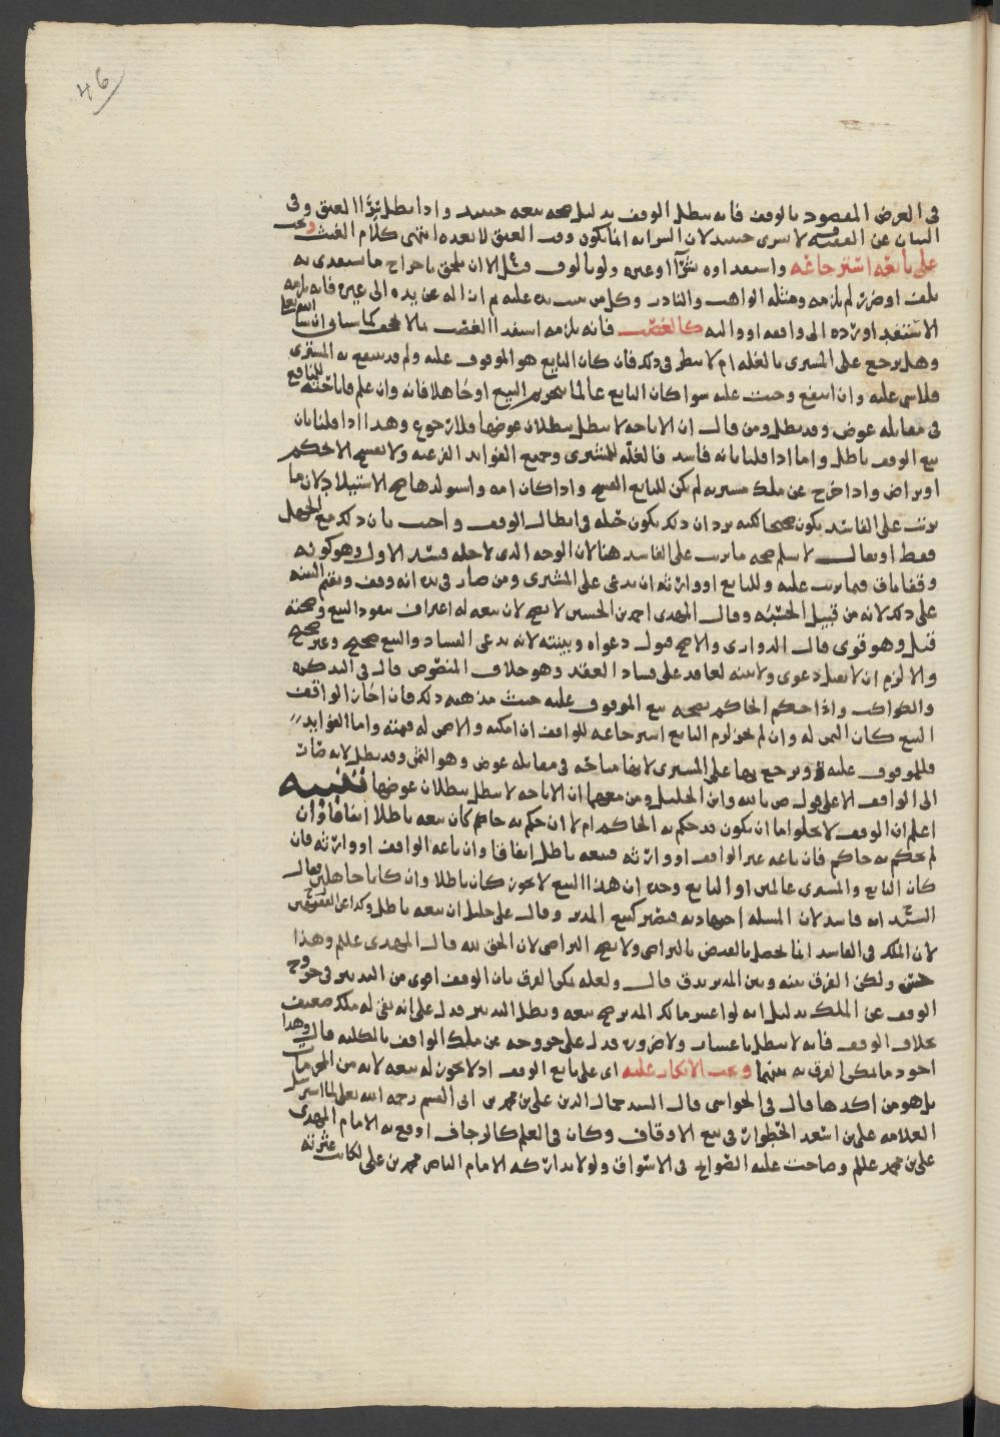 46
في الغرض المقصود بالوقف فانه يبطل الوقف بدليل صحه بيعه حينيد واذا بطل سرا العتق وفي
البيان عن الفقيه لا يسري حينيد لان السرايه انما يكون وقت العتق لا بعده انتهى كلام الغيث ويجب
على بايعه استرجاعه واستفداوه بشرا او غيره ولو بالوف مثل الا ان يلحق باجراح ما يتعدى به
تلف او ضرر لم يلزمه ومثله الواهب والنادر وكل من ثبت يده عليه ثم ازاله عن يده الى غيره فانه يلزمه
الاستفدا ورده الى واقفه او واليه كالغصب فانه يلزمه استفدا الغصب بما لا يجحف كما سياتي ان شا الله تعالى
وهل يرجع على المشتري بالغله ام لا ينظر في ذلك فان كان البايع هو الموقوف عليه ولم ينتفع به المشتري
فلا شي عليه وان انتفع وجبت عليه سوا كان البايع عالما بتحريم البيع او جاهلا فانه وان علم فاباحته للمنافع
في مقابله عوض وقد بطل ومن قال ان الاباحه لا تبطل ببطلان عوضها فلا رجوع وهذا اذا قلنا بان
بيع الوقف باطل واما اذا قلنا بانه فاسد فالغله للمشتري وجميع الفوايد الفرعيه ولا تفسيح الا بحكم
او تراض واذا خرج عن ملك مشتريه لم يكن للبايع الفسح واذا كان امه واستولدها صح الاستيلاد لان ما
ترتب على الفاسد يكون صحيحا لكنه يرد ان ذلك يكون حيله في ابطال الوقف واجيب بان ذلك مع الجهل
فقط او يقال لا نسلم صحه ما ترتب على الفاسد هنا لان الوجه الذي لاجله فسد الاول وهو كونه
وقفا باق فيما ترتب عليه وللبايع او وارثه ان يدعي على المشتري ومن صار في يده انه وقف ويقيم البينه
على ذلك لانه من قبيل الحسبه وقال المهدي احمد بن الحسين لا يصح لان بيعه له اعتراف بنفود البيع وصحته
قيل وهو قوي قال الدواري والاصح قبول دعواه وبينته لانه يدعي الفساد والبيع صحيح وغير صحيح
والا لزم ان لا تقبل دعوى ولا بينه لعاقد على فساد العقد وهو خلاف المنصوص قال في التذكره
والكواكب واذا حكم الحاكم بصحه بيع الموقوف عليه حيث مذهبه ذلك فان اجاز الواقف
البيع كان الثمن له وان لم يجز لزم البايع استرجاعه للواقف ان امكنه والا ضمن له قيمته واما الفوايد
فللموقوف عليه ويرجع بها على المشتري لانها مباحه في مقابله عوض وهو الثمن وقد بطل لانه صار
الى الواقف الا على قول ص بالله وابن الخليل ومن معهما ان الاباحه لا تبطل ببطلان عوضها تنبيه
اعلم ان الوقف لا يخلو اما ان يكون قد حكم به الحاكم ام لا ان حكم به حاكم كان بيعه باطلا اتفاقا وان
لم يحكم به حاكم فان باعه غير الواقف او وارثه فبيعه باطل اتفاقا وان باعه الواقف او وارثه فان
كان البايع والمشتري عالمين او البايع وحده ان هذا البيع لا يجوز كان باطلا وان كانا جاهلين فقال
السيد انه فاسد لان المسله اجتهاديه فيصير كبيع المدبر وقال علي خليل ان بيعه باطل
لان الملك في الفاسد انما يحصل بالقبض بالتراضي ولا يصح التراضي لان الحق لله قال المهدي عليلم وهذا
حسن ولكن الفرق بينه وبين المدبر يدق قال ولعله يمكن الفرق بان الوقف اقوى من التدبير في خروج
الوقف عن الملك بدليل انه لو اعسر مالك المدبر صح بيعه وبطل التدبير فدل على انه بقي له ملك ضعيف
بخلاف الوقف فانه لا يبطل باعسار ولا ضروره فدل على خروجه عن ملك الواقف بالكليه قال وهذا
اجود ما يمكن الفرق به بينهما ويجب الانكار عليه اي على بايع الوقف اذ لا يجوز له بيعه لانه من المحرمات
بل هو من اكدها قال في الحواشي قال السيد جمال الدين علي بن محمد بن ابي القسم رحمه الله تعالى لما استرسل
العلامه علي بن اسعد الخطوار في بيع الاوقاف وكان في العلم كالرجاف اوقع به الامام المهدي
علي بن محمد عليلم وصاحت عليه الصوايح في الاسواق ولولا تداركه الامام الناصر محمد بن علي لكانت عثرته